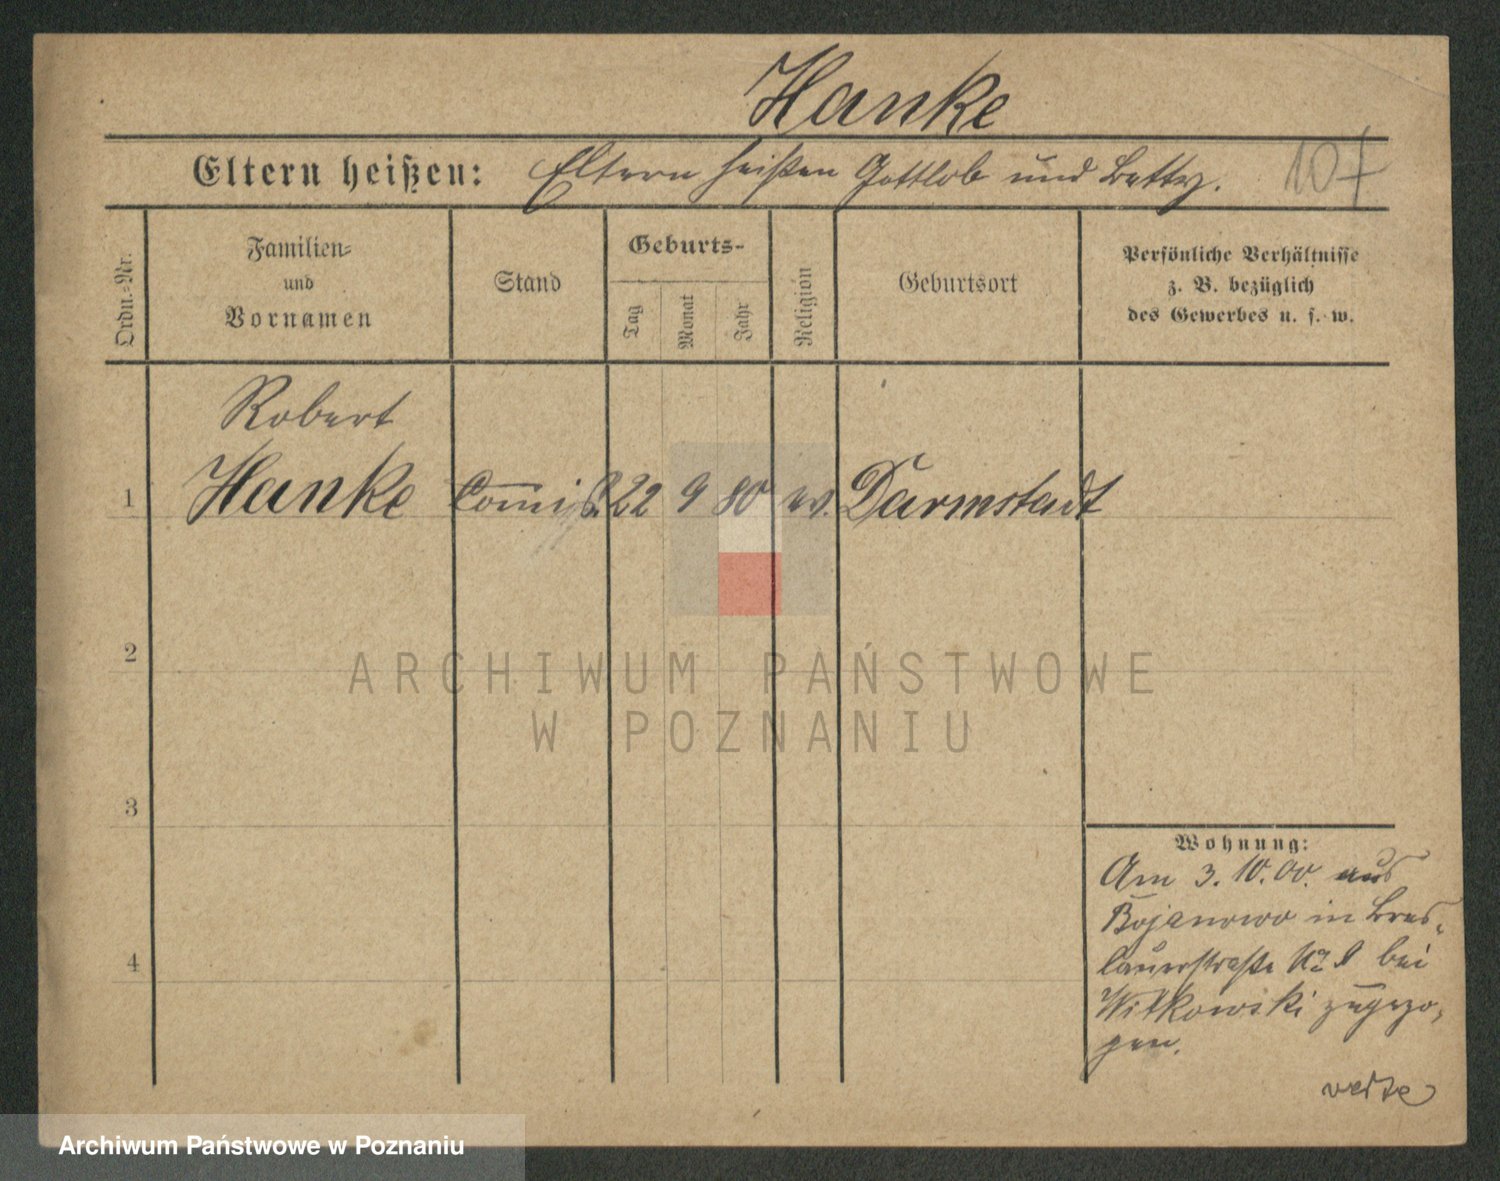 Hanke
Eltern heißen: Eltern heißen Gottlob und Betty. 107
Ordn.-Nr.
Familien-
und
Vornamen
Stand
Geburts-
Tag
Monat
Jahr
Religion
Geburtsort
Persönliche Verhältnisse
z. B. bezüglich
des Gewerbes u. s. w.
Robert
1 Hanke Commis 22 9 80 ev. Darmstadt
2
ARCHIWUM PAŃSTWOWE
W POZNANIU
3
Wohnung:
Am 3. 10. 00. aus
Bojanowo in Bres-
lauerstraße No bei
4
Witkowski zugezo-
gen.
verte
Archiwum Państwowe w Poznaniu